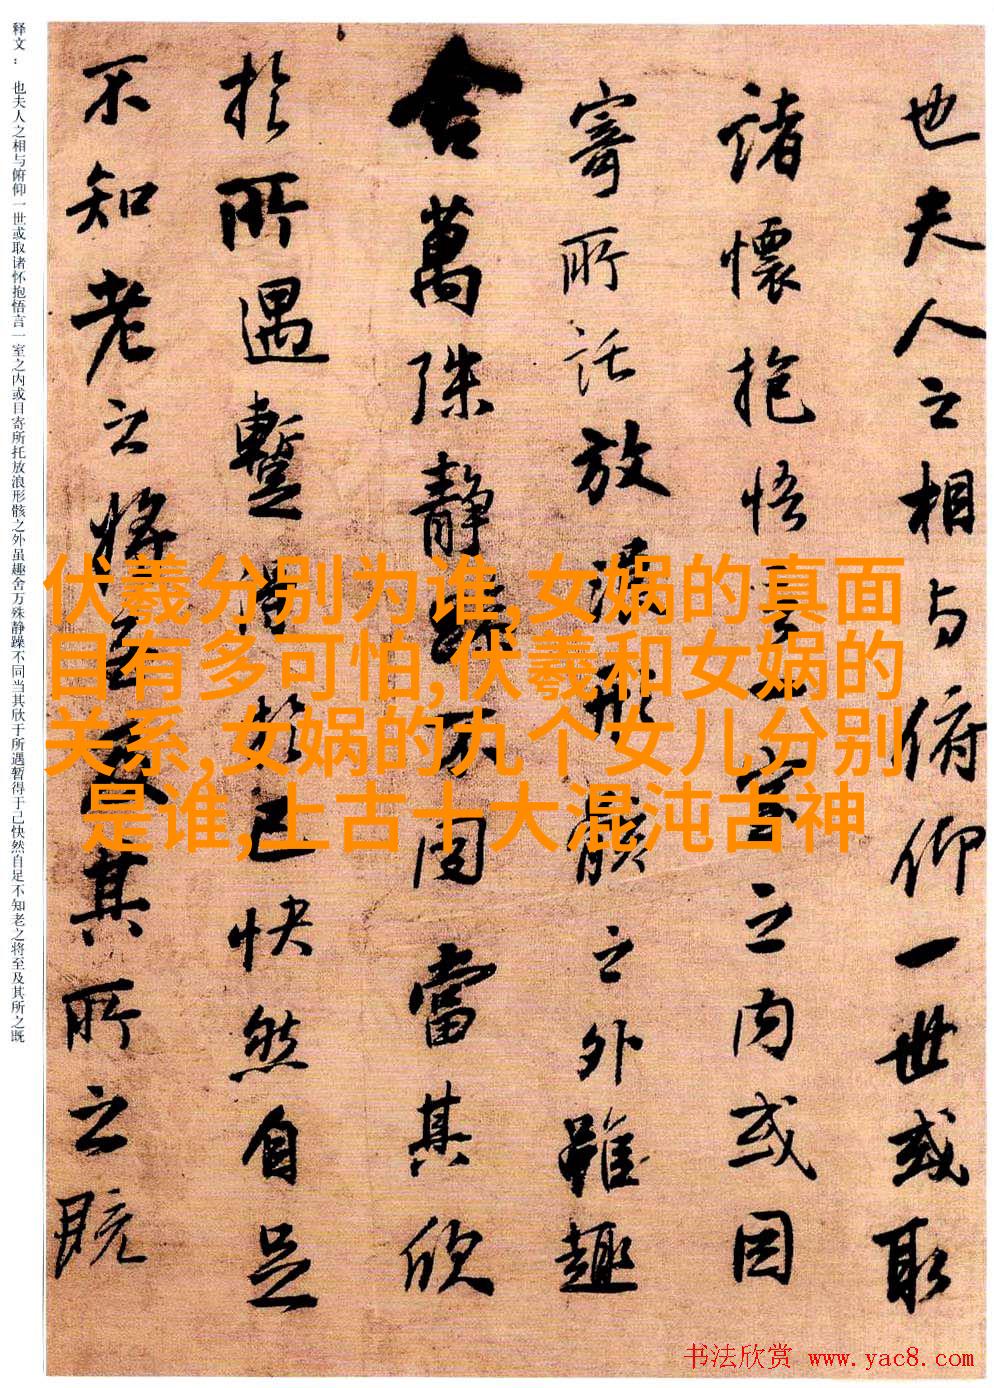 也夫人之相与俯仰一世或取
諸懷抱悟言一室之内或因
寄所託放浪形骸之外雖趣
舍萬殊靜躁不同當其欣
於所遇暫得於己快然自足
不知老之將至及其所之既
释文： 也夫人之相与俯仰一世或取诸怀抱悟言一室之内或目寄所托放浪形骸之外虽趣舍万殊静躁不同当其欣于所遇暂得于己快然自足不知老之将至及其所之既
伏羲分别为谁,女娲的真面
目有多可怕,伏羲和女娲的
关系,女娲的九个女儿分别
是谁,上古十大混沌古神
书法欣赏 www.yac8.com